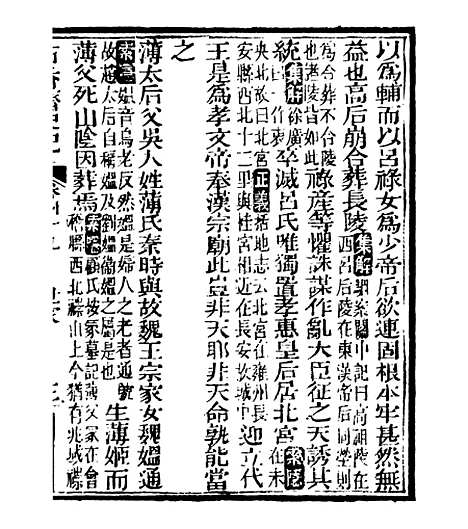 以爲輔而以呂祿女爲少帝后欲連固根本牢甚然無
益也高后崩合葬長陵集解駰案關中記曰高祖陵在西呂后陵在東漢帝后同塋則
爲合葬不合陵也諸陵皆如此祿產等懼誅謀作亂大臣征之天誘其
統集解徐廣曰一作衷卒滅呂氏唯獨置孝惠皇后居北宮索隱在未
央北故曰北宮正義括地志云北宮在雍州長安縣西北十三里與桂宮相近在長安故城中迎立代
王是爲孝文帝奉漢宗廟此豈非天耶非天命孰能當
之
薄太后父吳人姓薄氏秦時與故魏王宗家女魏媼通
索隱媼音烏老反然媼是婦人之老者通號故趙太后自稱媼及劉媼衞媼之屬是也生薄姬而
薄父死山陰因葬焉索隱顧氏按冢墓記薄父冢在會稽縣西北襟山上今猶有兆域襟
卷四十九 世家